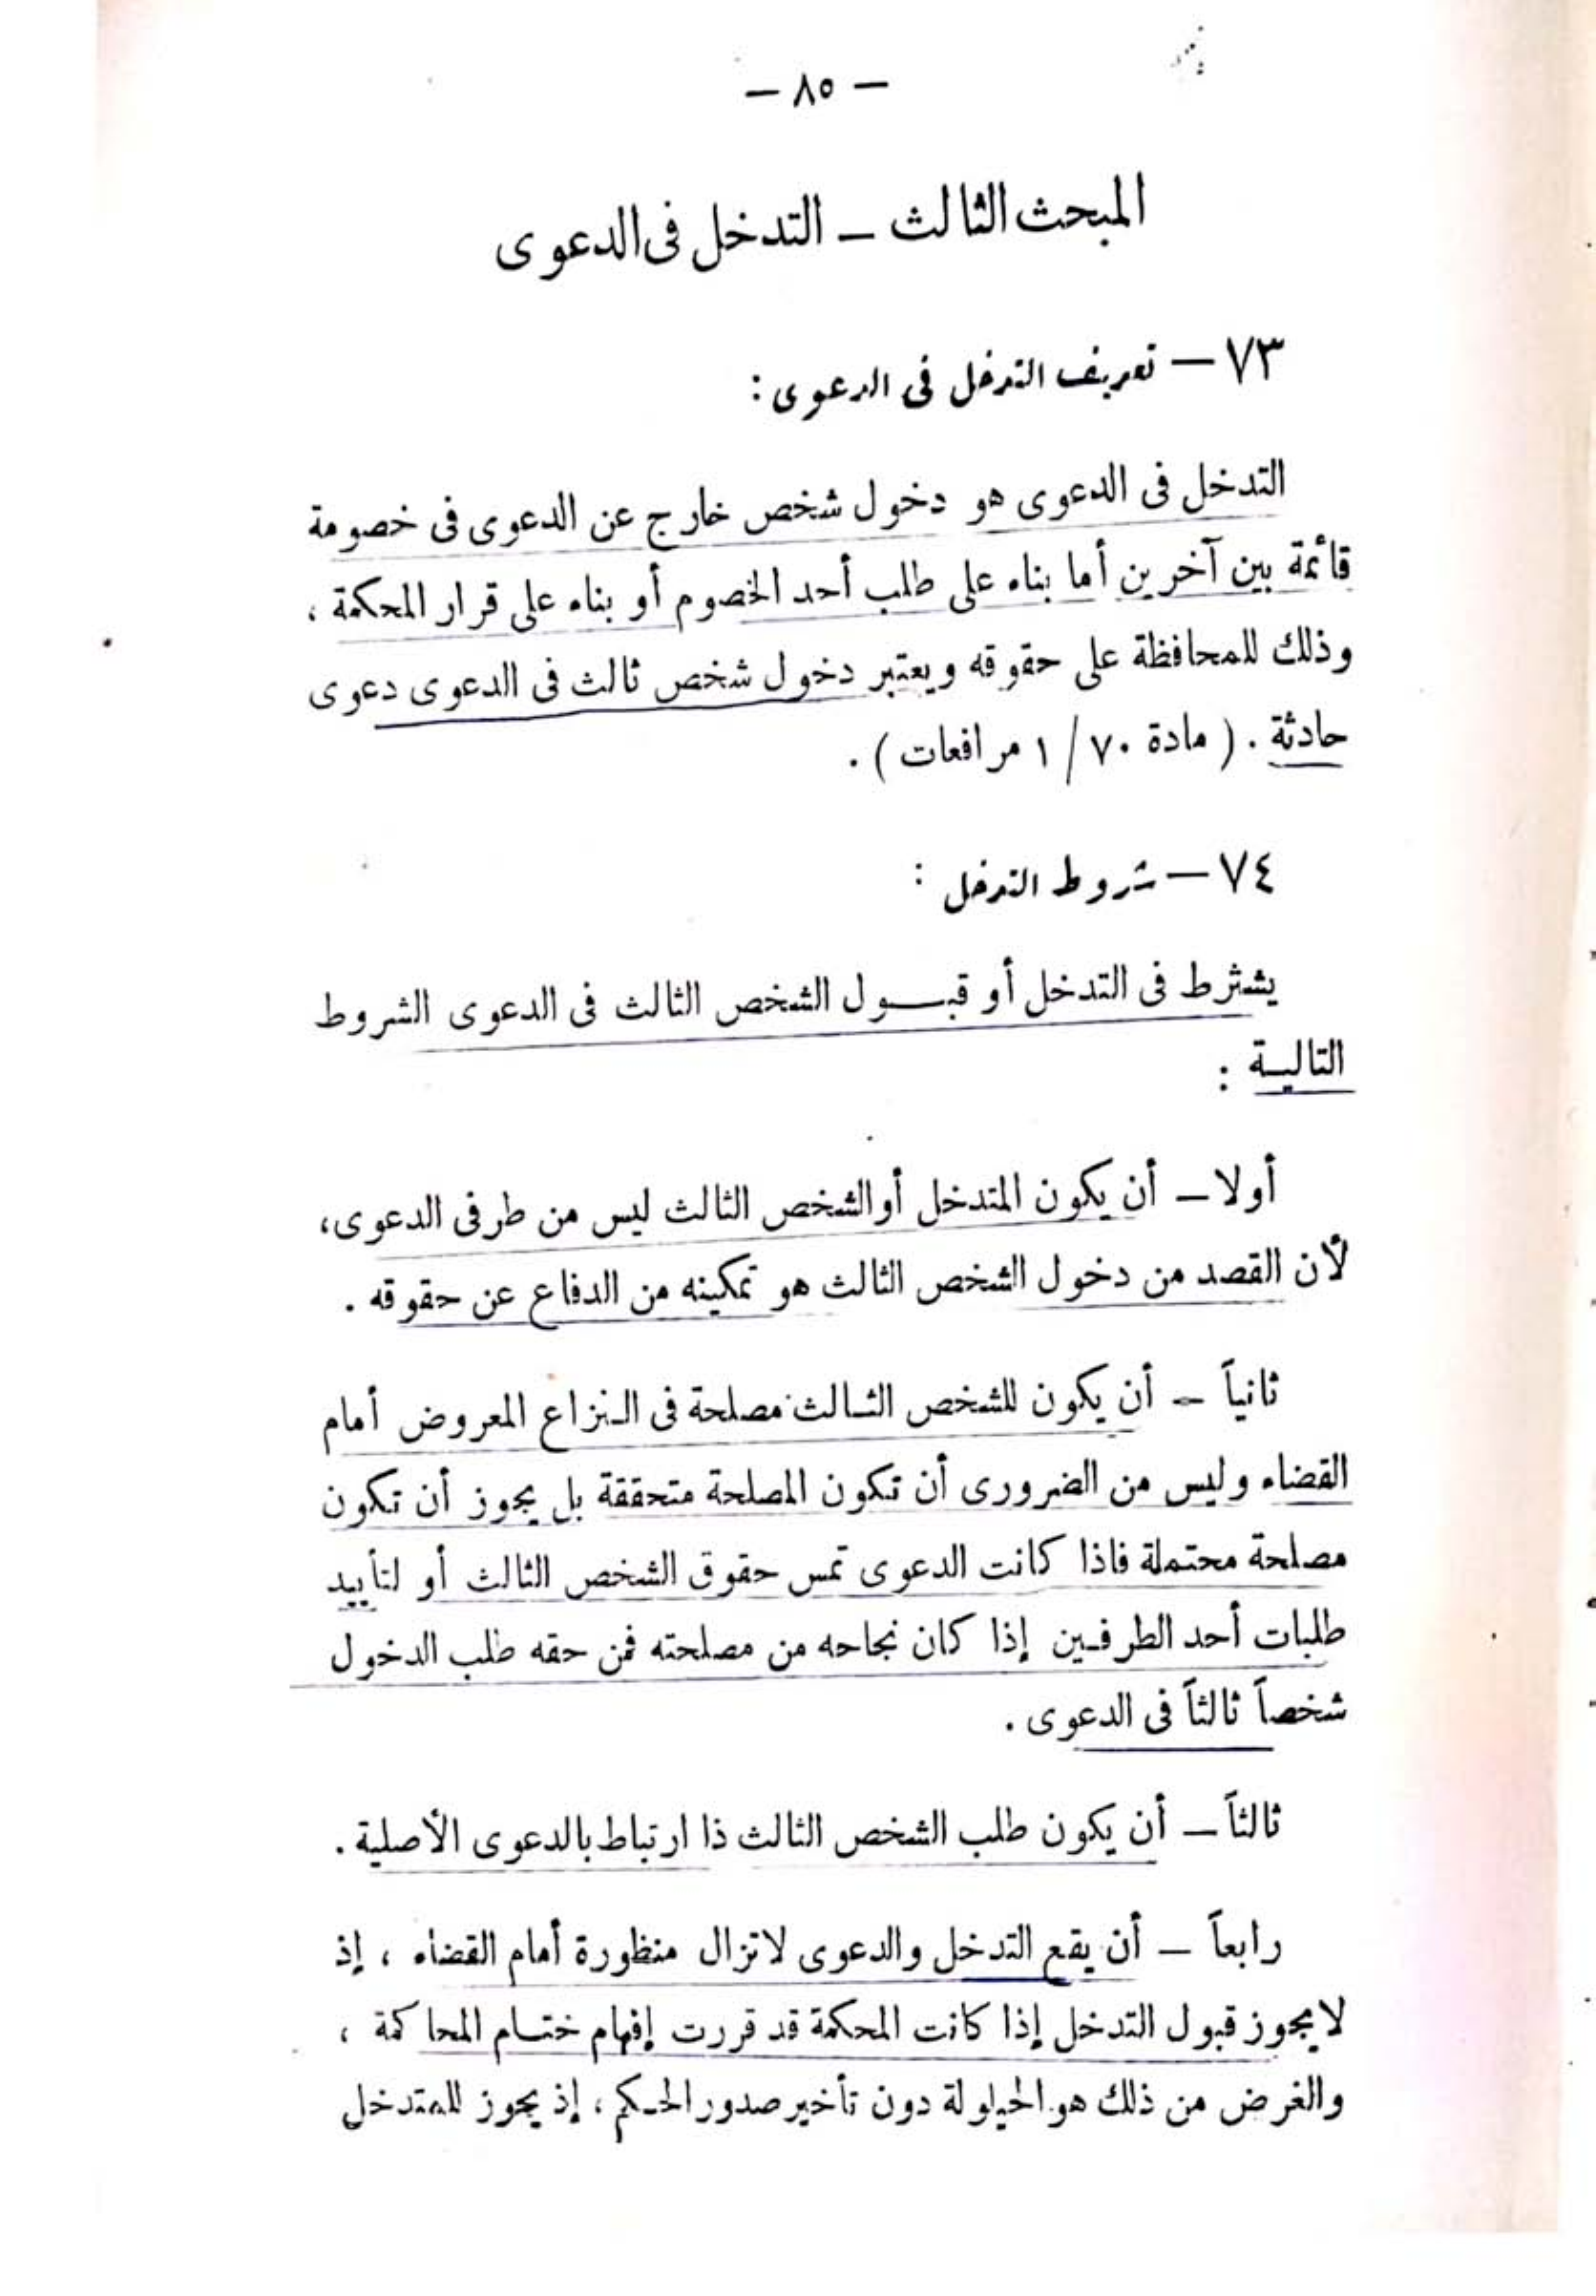 — ٨٥ —
المبحث الثالث — التدخل فى الدعوى
٧٣ — تعريف التدخل فى الدعوى :
التدخل فى الدعوى هو دخول شخص خارج عن الدعوى فى خصومة
قائمة بين آخرين أما بناء على طلب أحد الخصوم أو بناء على قرار المحكمة ،
وذلك للمحافظة على حقوقه ويعتبر دخول شخص ثالث فى الدعوى دعوى
حادثة . ( مادة ٧٠ / ١ مرافعات ) .
٧٤ — شروط التدخل :
يشترط فى التدخل أو قبـــول الشخص الثالث فى الدعوى الشروط
التاليـة :
أولا — أن يكون المتدخل أو الشخص الثالث ليس من طرفى الدعوى،
لأن القصد من دخول الشخص الثالث هو تمكينه من الدفاع عن حقوقه .
ثانياً — أن يكون للشخص الثـالث مصلحة فى الـنزاع المعروض أمام
القضاء وليس من الضرورى أن تكون المصلحة متحققة بل يجوز أن تكون
مصلحة محتملة فاذا كانت الدعوى تمس حقوق الشخص الثالث أو لتأييد
طلبات أحد الطرفـين إذا كان نجاحه من مصلحته فمن حقه طلب الدخول
شخصاً ثالثاً فى الدعوى .
ثالثاً — أن يكون طلب الشخص الثالث ذا ارتباط بالدعوى الأصلية .
رابعاً — أن يقع التدخل والدعوى لاتزال منظورة أمام القضاء ، إذ
لا يجوز قبول التدخل إذا كانت المحكمة قد قررت إفهام ختـام المحاكمة ،
والغرض من ذلك هو الحيلولة دون تأخير صدور الحـكم ، إذ يجوز للمتدخل